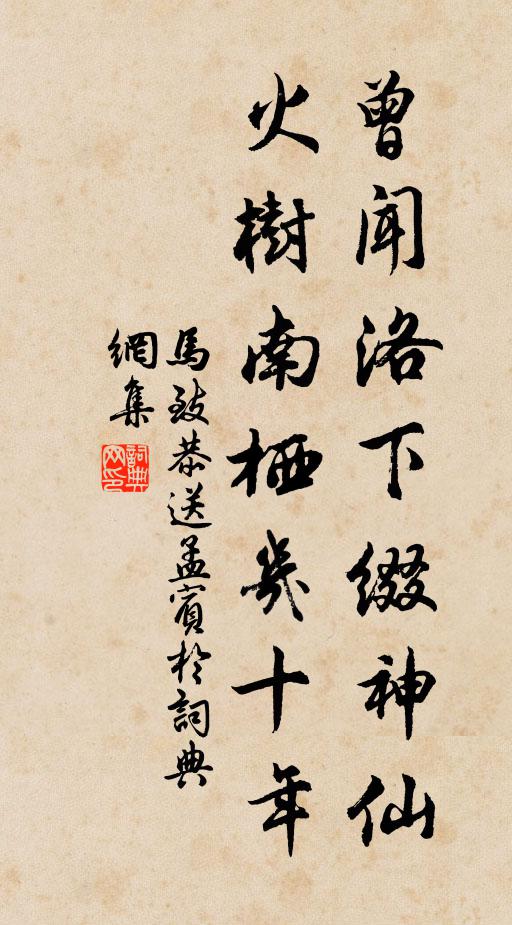 曾聞洛下綴神仙
火樹南栖幾十年
馬致恭送孟賓於詞典
網集
詞典
网印